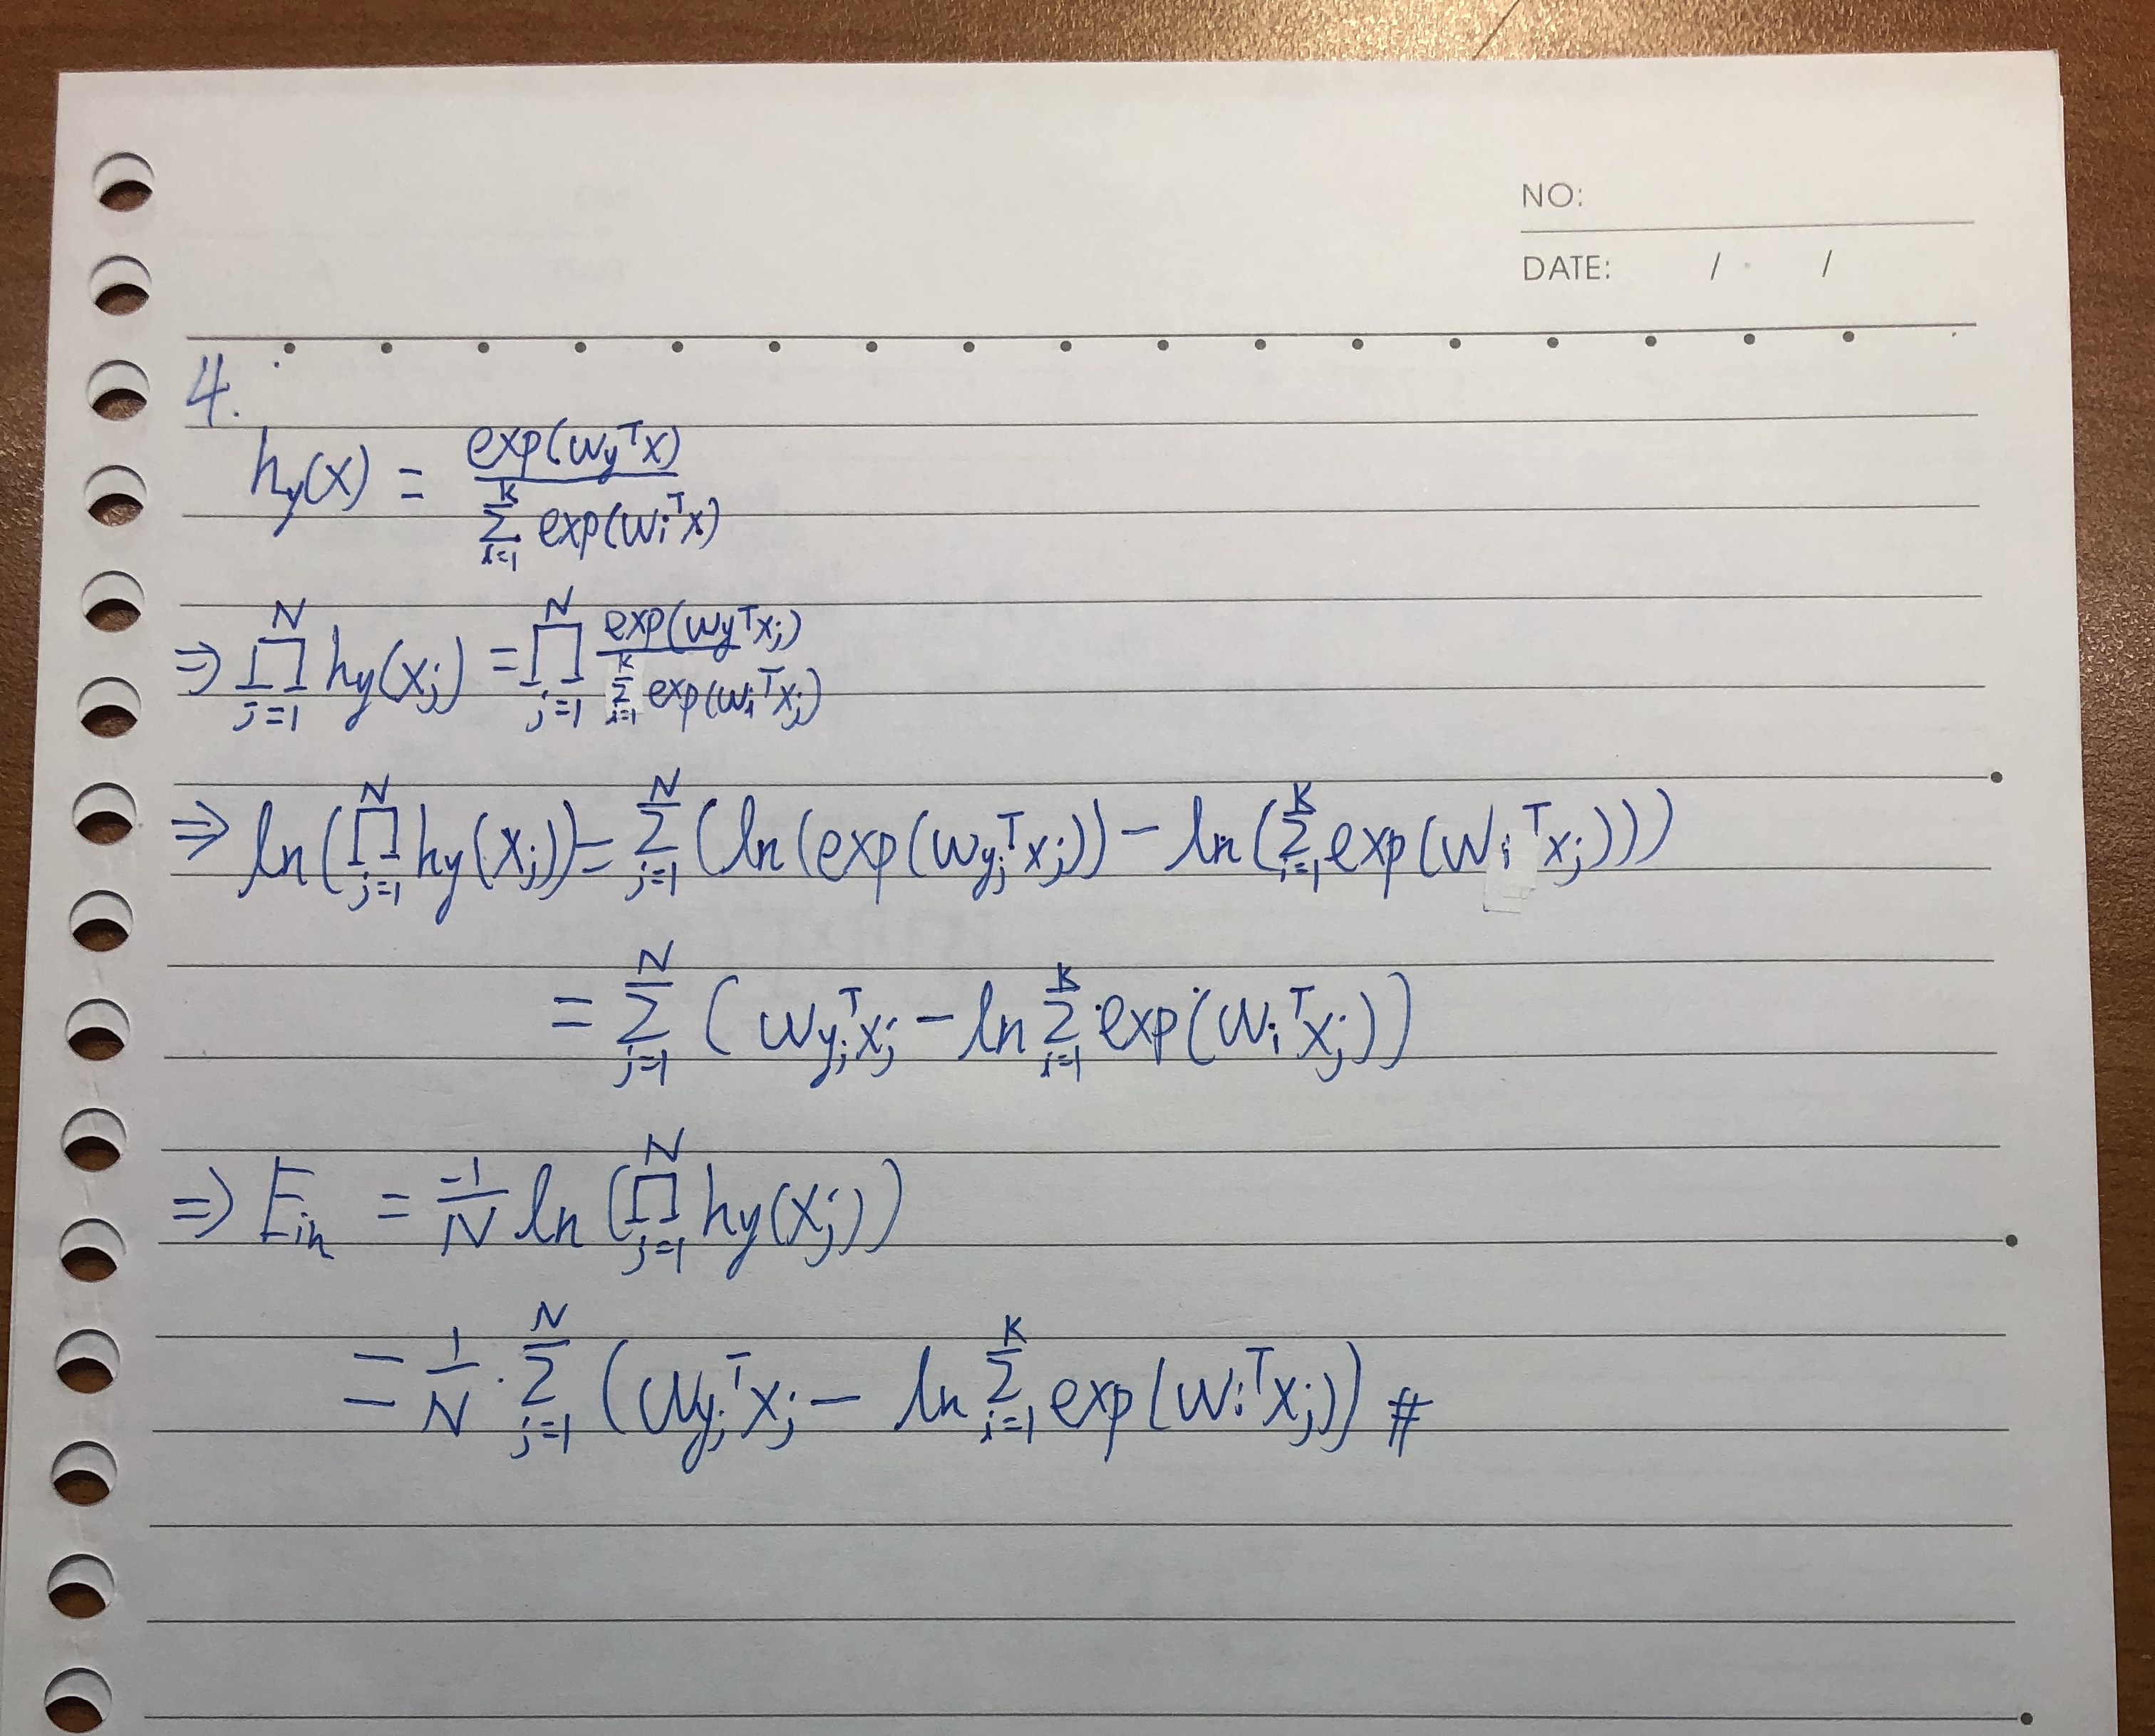 NO:
DATE: / /
4.
h_y(x) = exp(w_y^T x) / Σ_{i=1}^{K} exp(w_i^T x)
⇒ ∏_{j=1}^{N} h_y(x_j) = ∏_{j=1}^{N} exp(w_y^T x_j) / Σ_{i=1}^{K} exp(w_i^T x_j)
⇒ ln(∏_{j=1}^{N} h_y(x_j)) = Σ_{j=1}^{N} (ln(exp(w_{y_j}^T x_j)) − ln(Σ_{i=1}^{K} exp(w_i^T x_j)))
= Σ_{j=1}^{N} (w_{y_j}^T x_j − ln Σ_{i=1}^{K} exp(w_i^T x_j))
⇒ E_in = -1/N ln(∏_{j=1}^{N} h_y(x_j))
= 1/N · Σ_{j=1}^{N} (w_{y_j}^T x_j − ln Σ_{i=1}^{K} exp(w_i^T x_j)) #